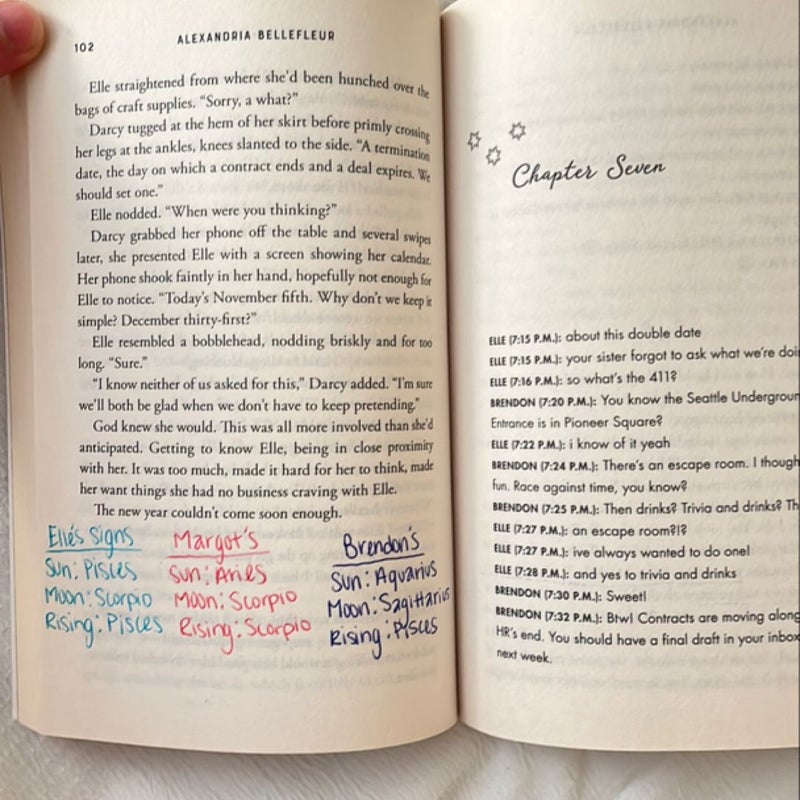 102
ALEXANDRIA BELLEFLEUR
Elle straightened from where she'd been hunched over the
bags of craft supplies. “Sorry, a what?”
Darcy tugged at the hem of her skirt before primly crossing
her legs at the ankles, knees slanted to the side. “A termination
date, the day on which a contract ends and a deal expires. We
should set one.”
Elle nodded. “When were you thinking?”
Darcy grabbed her phone off the table and several swipes
later, she presented Elle with a screen showing her calendar.
Her phone shook faintly in her hand, hopefully not enough for
Elle to notice. “Today's November fifth. Why don't we keep it
simple? December thirty-first?”
Elle resembled a bobblehead, nodding briskly and for too
long. “Sure.”
“I know neither of us asked for this,” Darcy added. “I'm sure
we'll both be glad when we don't have to keep pretending.”
God knew she would. This was all more involved than she'd
anticipated. Getting to know Elle, being in close proximity
with her. It was too much, made it hard for her to think, made
her want things she had no business craving with Elle.
The new year couldn't come soon enough.
Elle's Signs
Sun: Pisces
Moon: Scorpio
Rising: Pisces
Margot's
Sun: Aries
Moon: Scorpio
Rising: Scorpio
Brendon's
Sun: Aquarius
Moon: Sagittarius
Rising: Pisces
Chapter Seven
ELLE (7:15 P.M.): about this double date
ELLE (7:15 P.M.): your sister forgot to ask what we're doi
ELLE (7:16 P.M.): so what's the 411?
BRENDON (7:20 P.M.): You know the Seattle Undergroun
Entrance is in Pioneer Square?
ELLE (7:22 P.M.): i know of it yeah
BRENDON (7:24 P.M.): There's an escape room. I though
fun. Race against time, you know?
BRENDON (7:25 P.M.): Then drinks? Trivia and drinks? Th
ELLE (7:27 P.M.): an escape room?!?
ELLE (7:27 P.M.): ive always wanted to do one!
ELLE (7:28 P.M.): and yes to trivia and drinks
BRENDON (7:30 P.M.): Sweet!
BRENDON (7:32 P.M.): Btw! Contracts are moving along
HR's end. You should have a final draft in your inbox
next week.